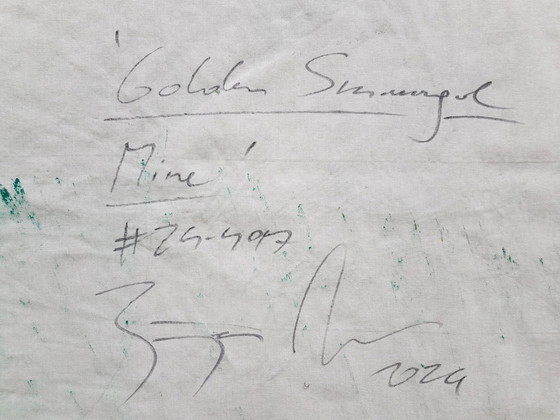 'Golden Smaragd
Mine'
#24-497
2024